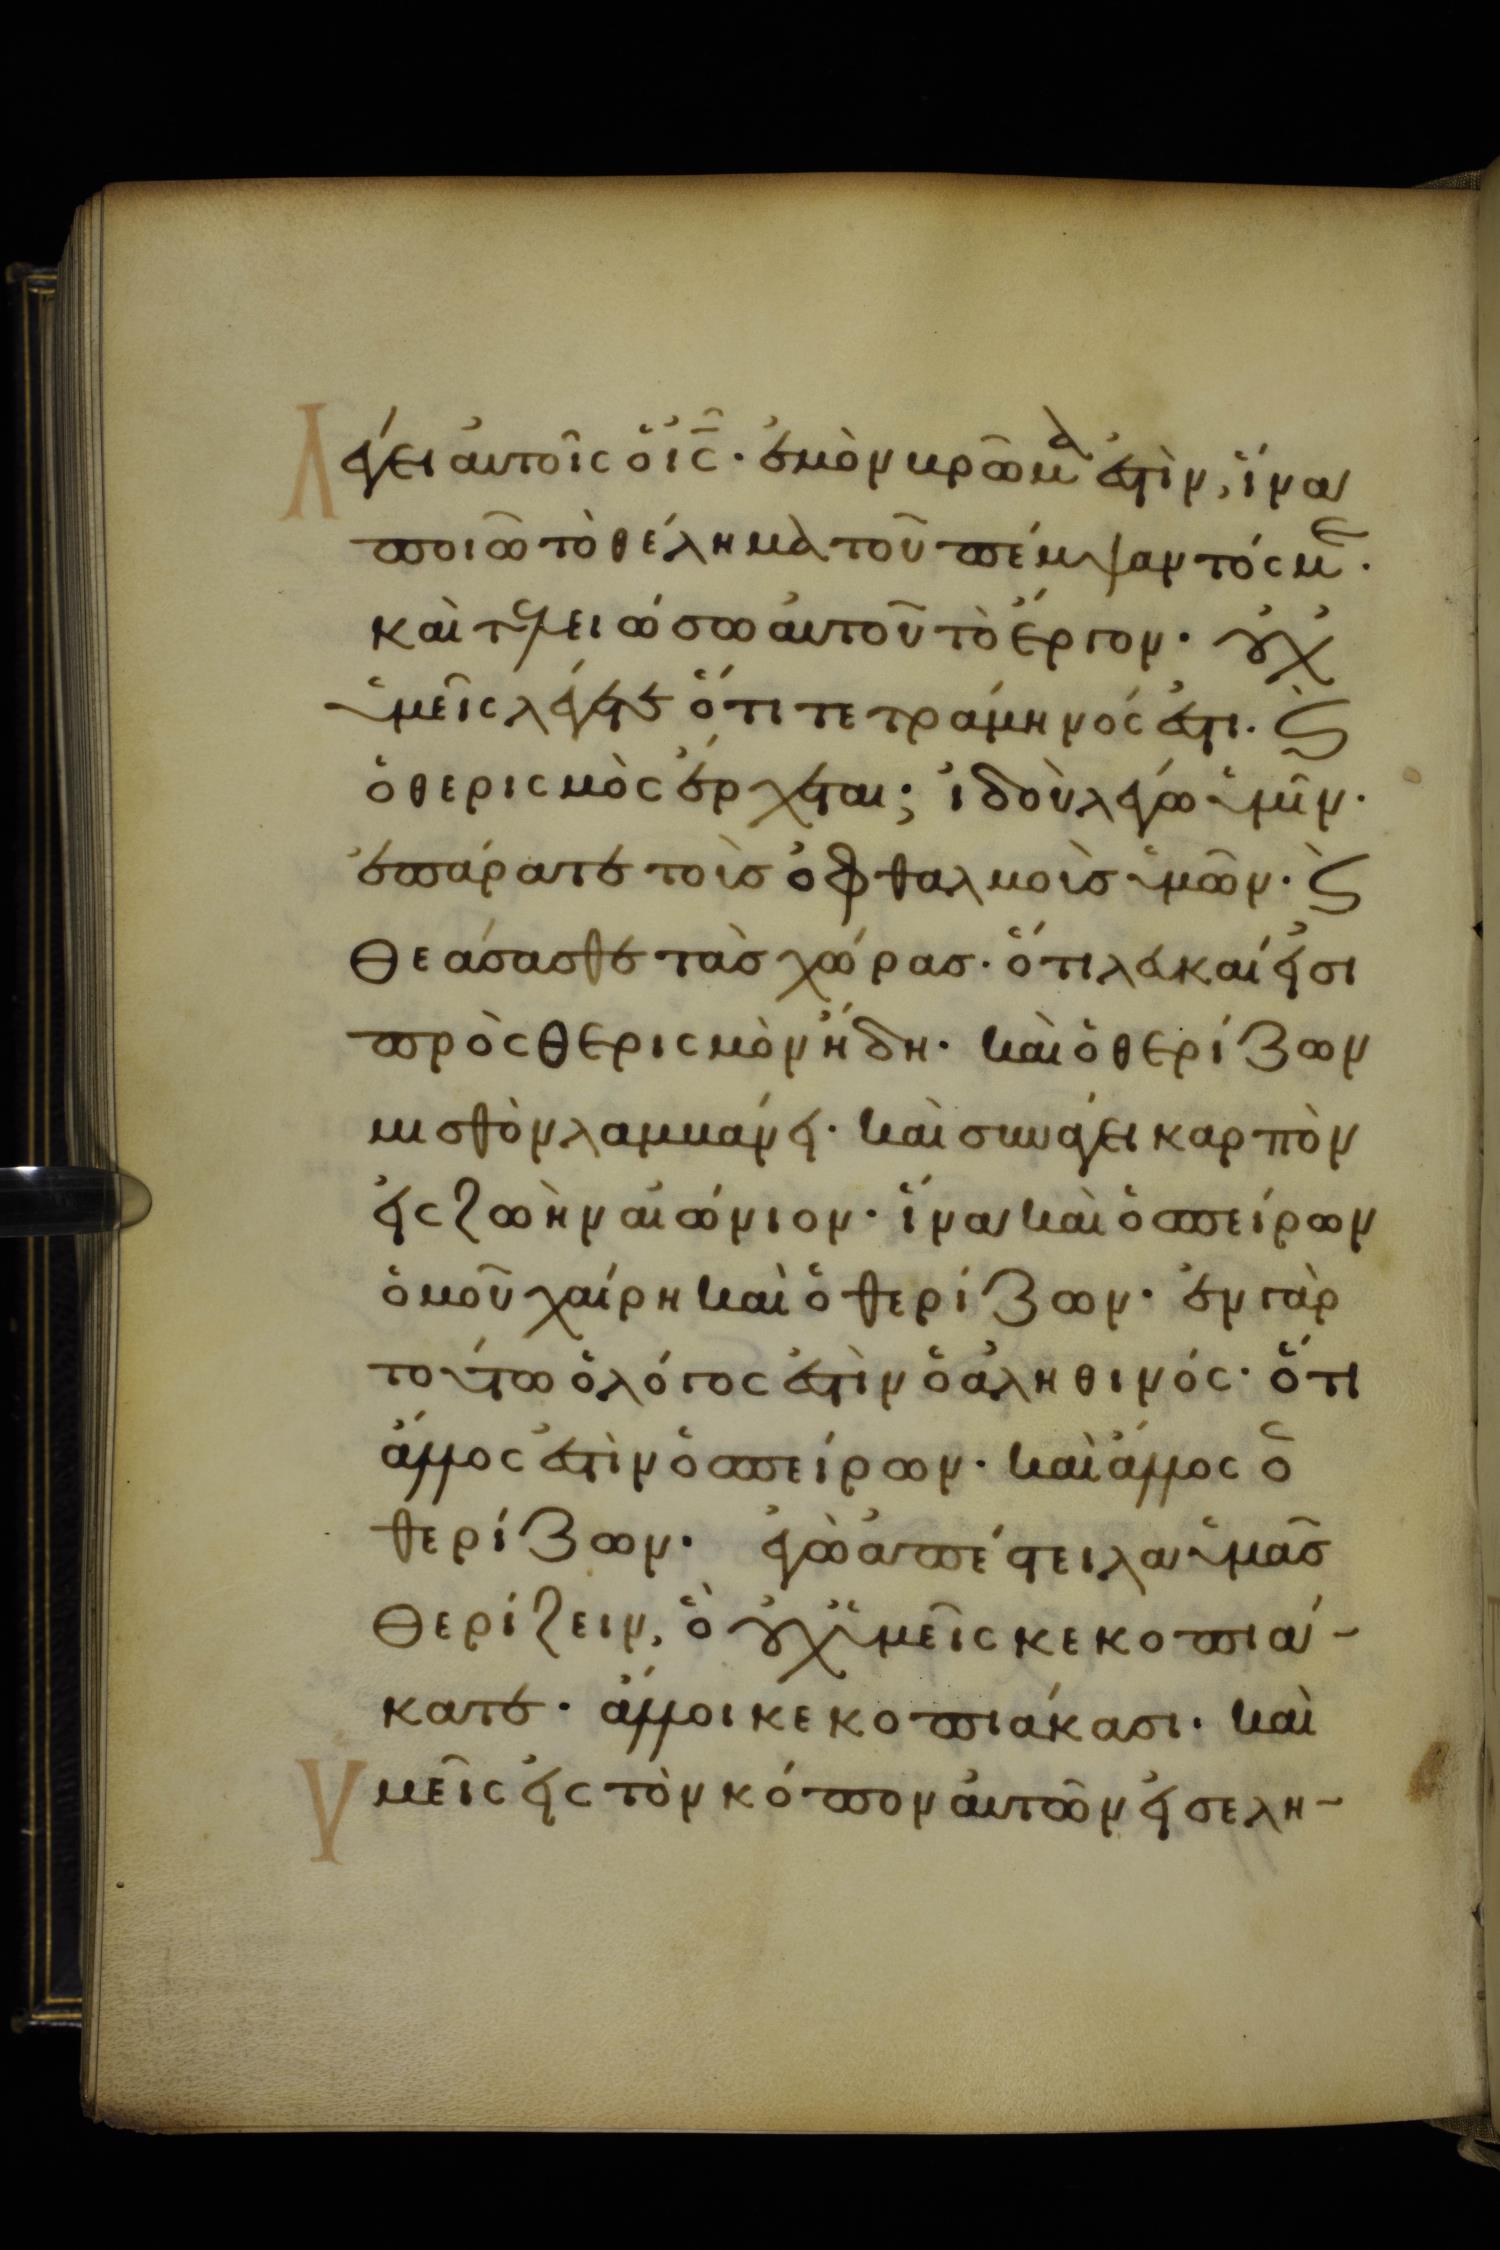 Λέγει αὐτοῖς ὁ ἰς̄· ἐμὸν βρῶμά ἐστὶν, ἵνα
ποιῶ τὸ θέλημα τοῦ πέμψαντός με·
καὶ τελειώσω αὐτοῦ τὸ ἔργον· οὐχ
ὑμεῖς λέγετε ὅτι τετράμηνός ἐστι· ϗ
ὁ θερισμὸς ἔρχεται; ἰδοὺ λέγω ὑμῖν·
ἐπάρατε τοὺς ὀφθαλμοὺς ὑμῶν· ϗ
θεάσασθε τὰς χώρας· ὅτι λευκαί εἰσι
πρὸς θερισμὸν ἤδη· καὶ ὁ θερίζων
μισθὸν λαμβάνει· καὶ συνάγει καρπὸν
εἰς ζωὴν αἰώνιον· ἵνα καὶ ὁ σπείρων
ὁμοῦ χαίρη καὶ ὁ θερίζων· ἐν γὰρ
τούτω ὁ λόγος ἐστὶν ὁ ἀληθινός· ὅτι
ἄλλος ἐστὶν ὁ σπείρων· καὶ ἄλλος ὁ
θερίζων· ἐγὼ ἀπέστειλα ὑμᾶς
θερίζειν, ὃ οὐχ ὑμεῖς κεκοπιά-
κατε· ἄλλοι κεκοπιάκασι· καὶ
ὑμεῖς εἰς τὸν κόπον αὐτῶν εἰσελη-